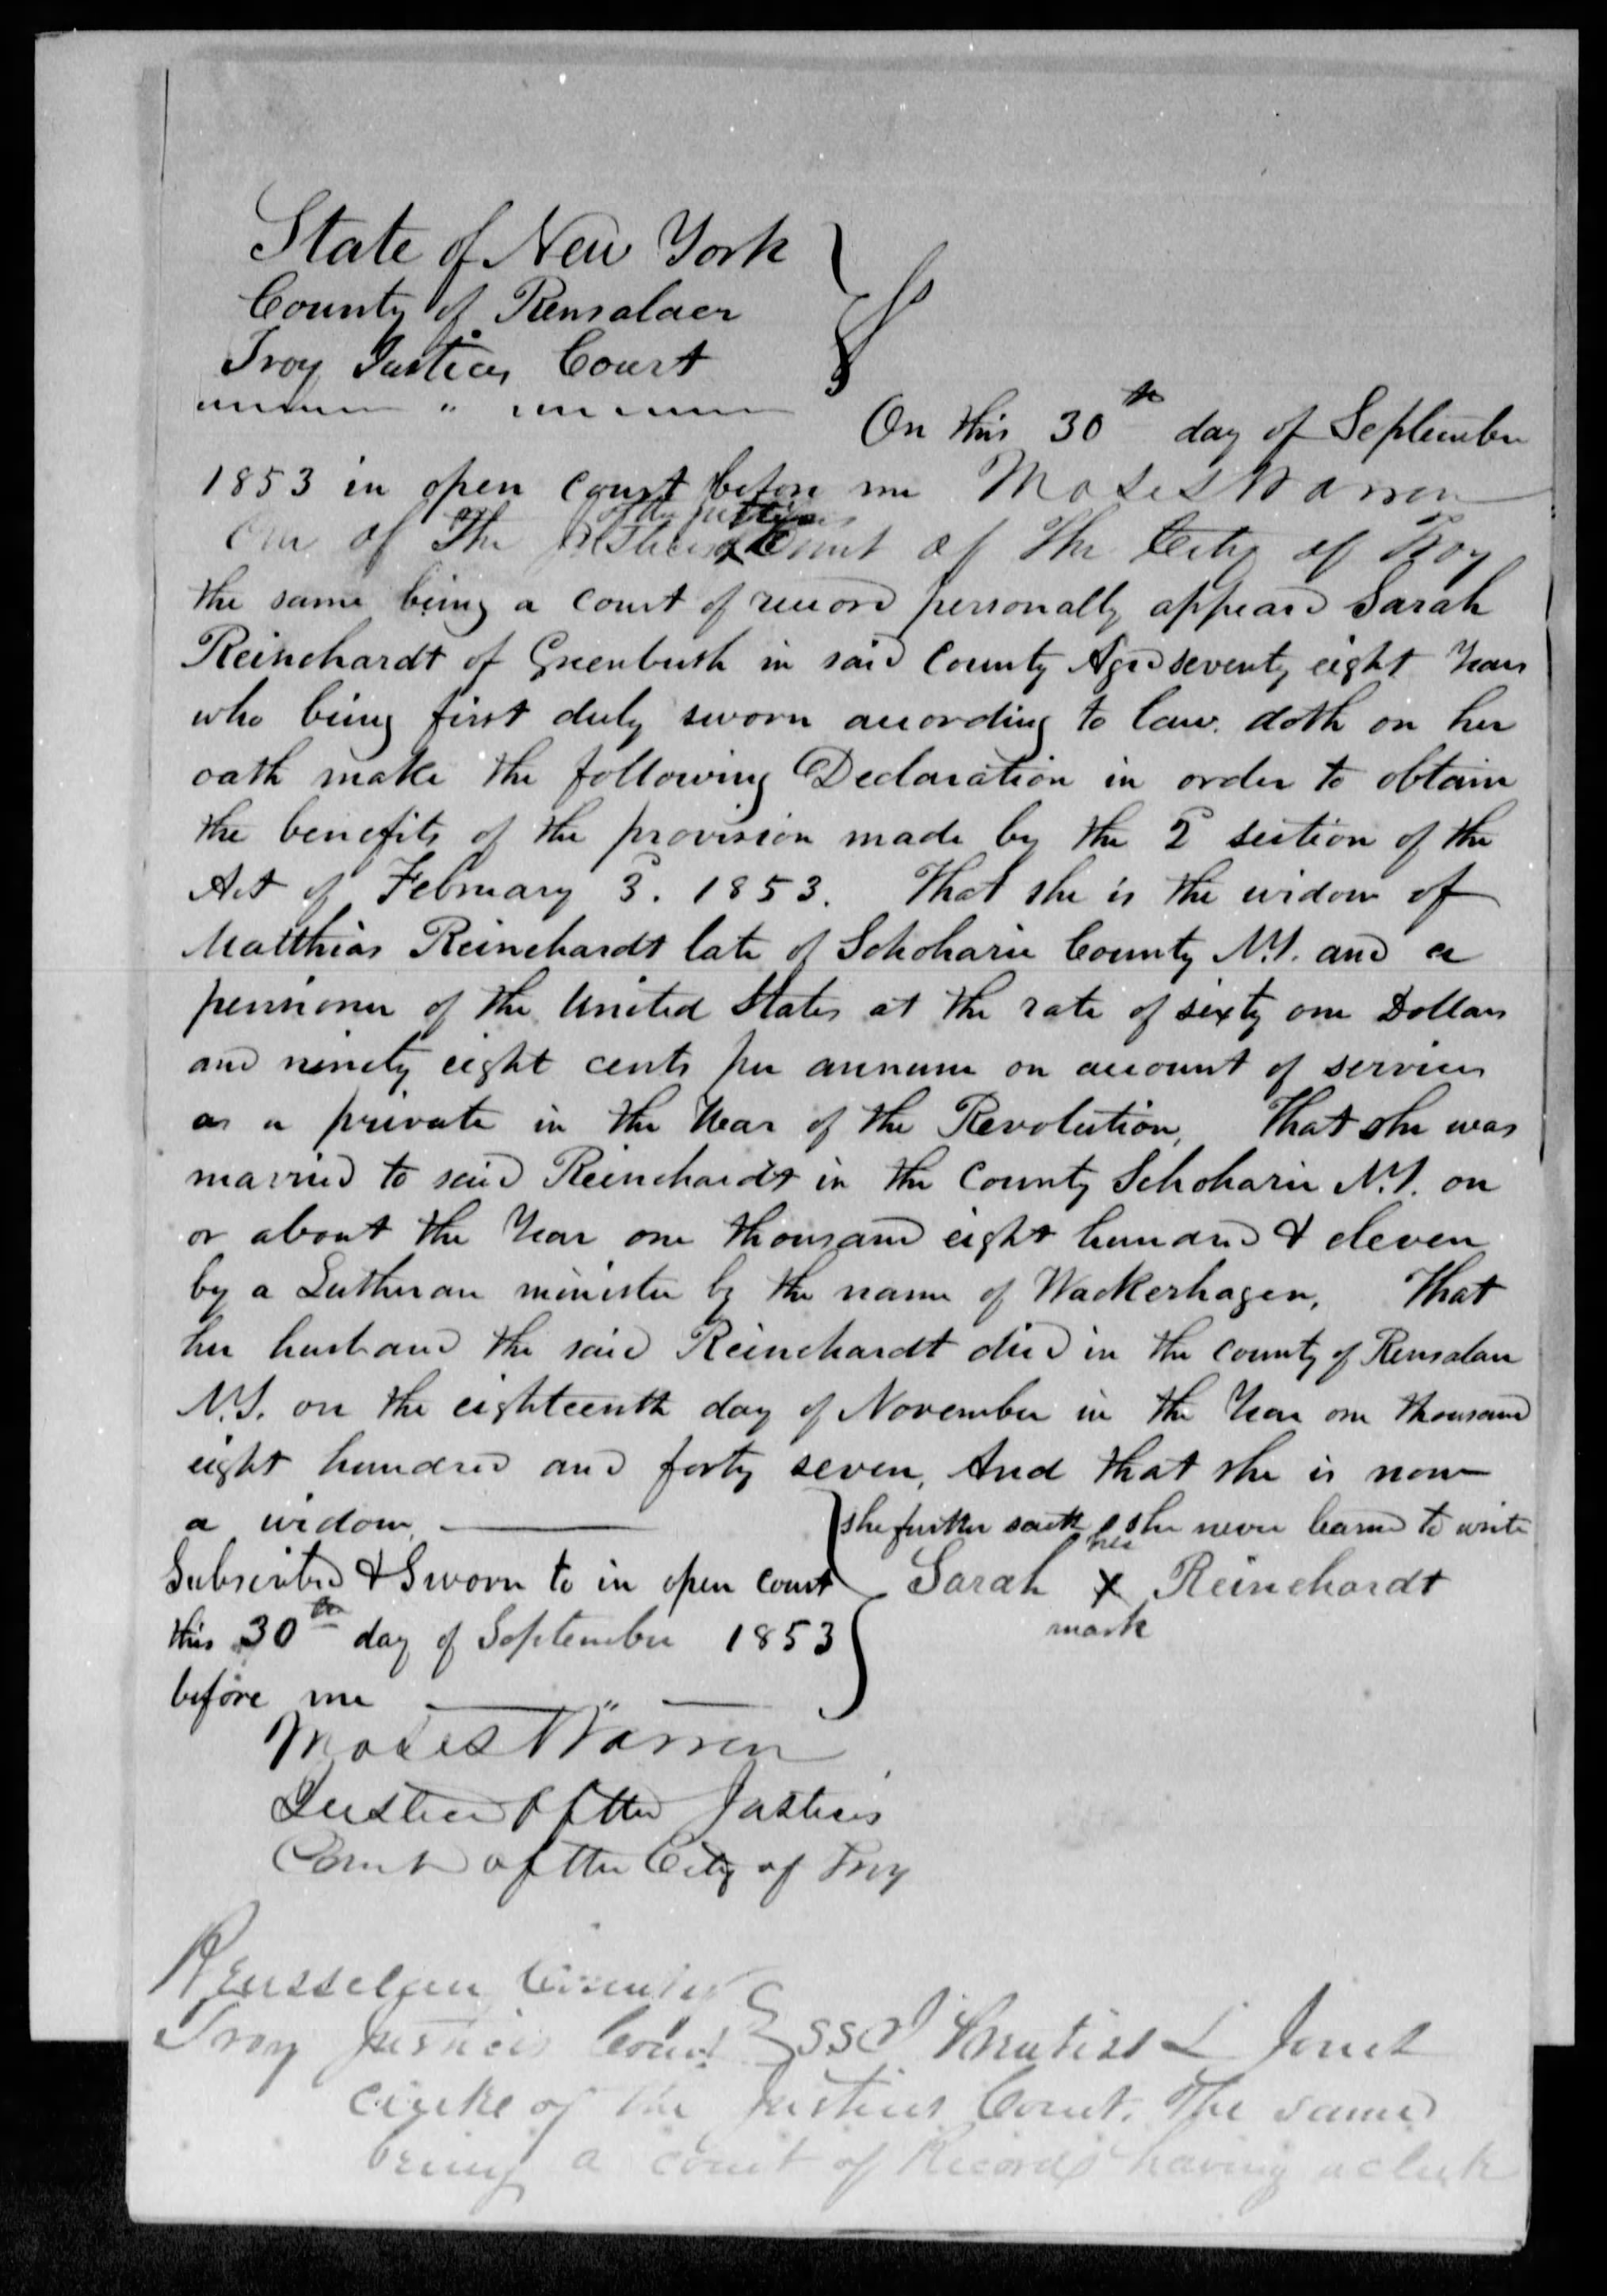 State of New York
County of Rensalaer
Troy Justices Court
ss
On this 30th day of September
1853 in open court before me Moses Warren
of the Justices
One of The Justices Court of the City of Troy
the same being a court of record personally appeared Sarah
Reinehardt of Greenbush in said County Aged seventy eight Years
who being first duly sworn according to law. doth on her
oath make the following Declaration in order to obtain
the benefits of the provision made by the 2d section of the
Act of February 3. 1853. That she is the widow of
Matthias Reinehardt late of Schoharie County N.Y. and a
pensioner of the United States at the rate of sixty one Dollars
and ninety eight cents per annum on account of services
as a private in the War of the Revolution, That she was
married to said Reinehardt in the County Schoharie N.Y. on
or about the Year one thousand eight hundred & eleven
by a Lutheran minister by the name of Wackerhagen, That
her husband the said Reinehardt died in the county of Rensalaer
N.Y. on the eighteenth day of November in the Year one thousand
eight hundred and forty seven, And that she is now
a widow
she further saith she never learned to write
Subscribed & Sworn to in open court
this 30th day of September 1853
before me
her
Sarah X Reinehardt
mark
Moses Warren
Justice of the Justices
Court of the City of Troy
Rensselaer County
Troy Justices Court } SS I Prentiss L Jones
Clerke of the Justices Court. The same
being a court of Record having a clerk